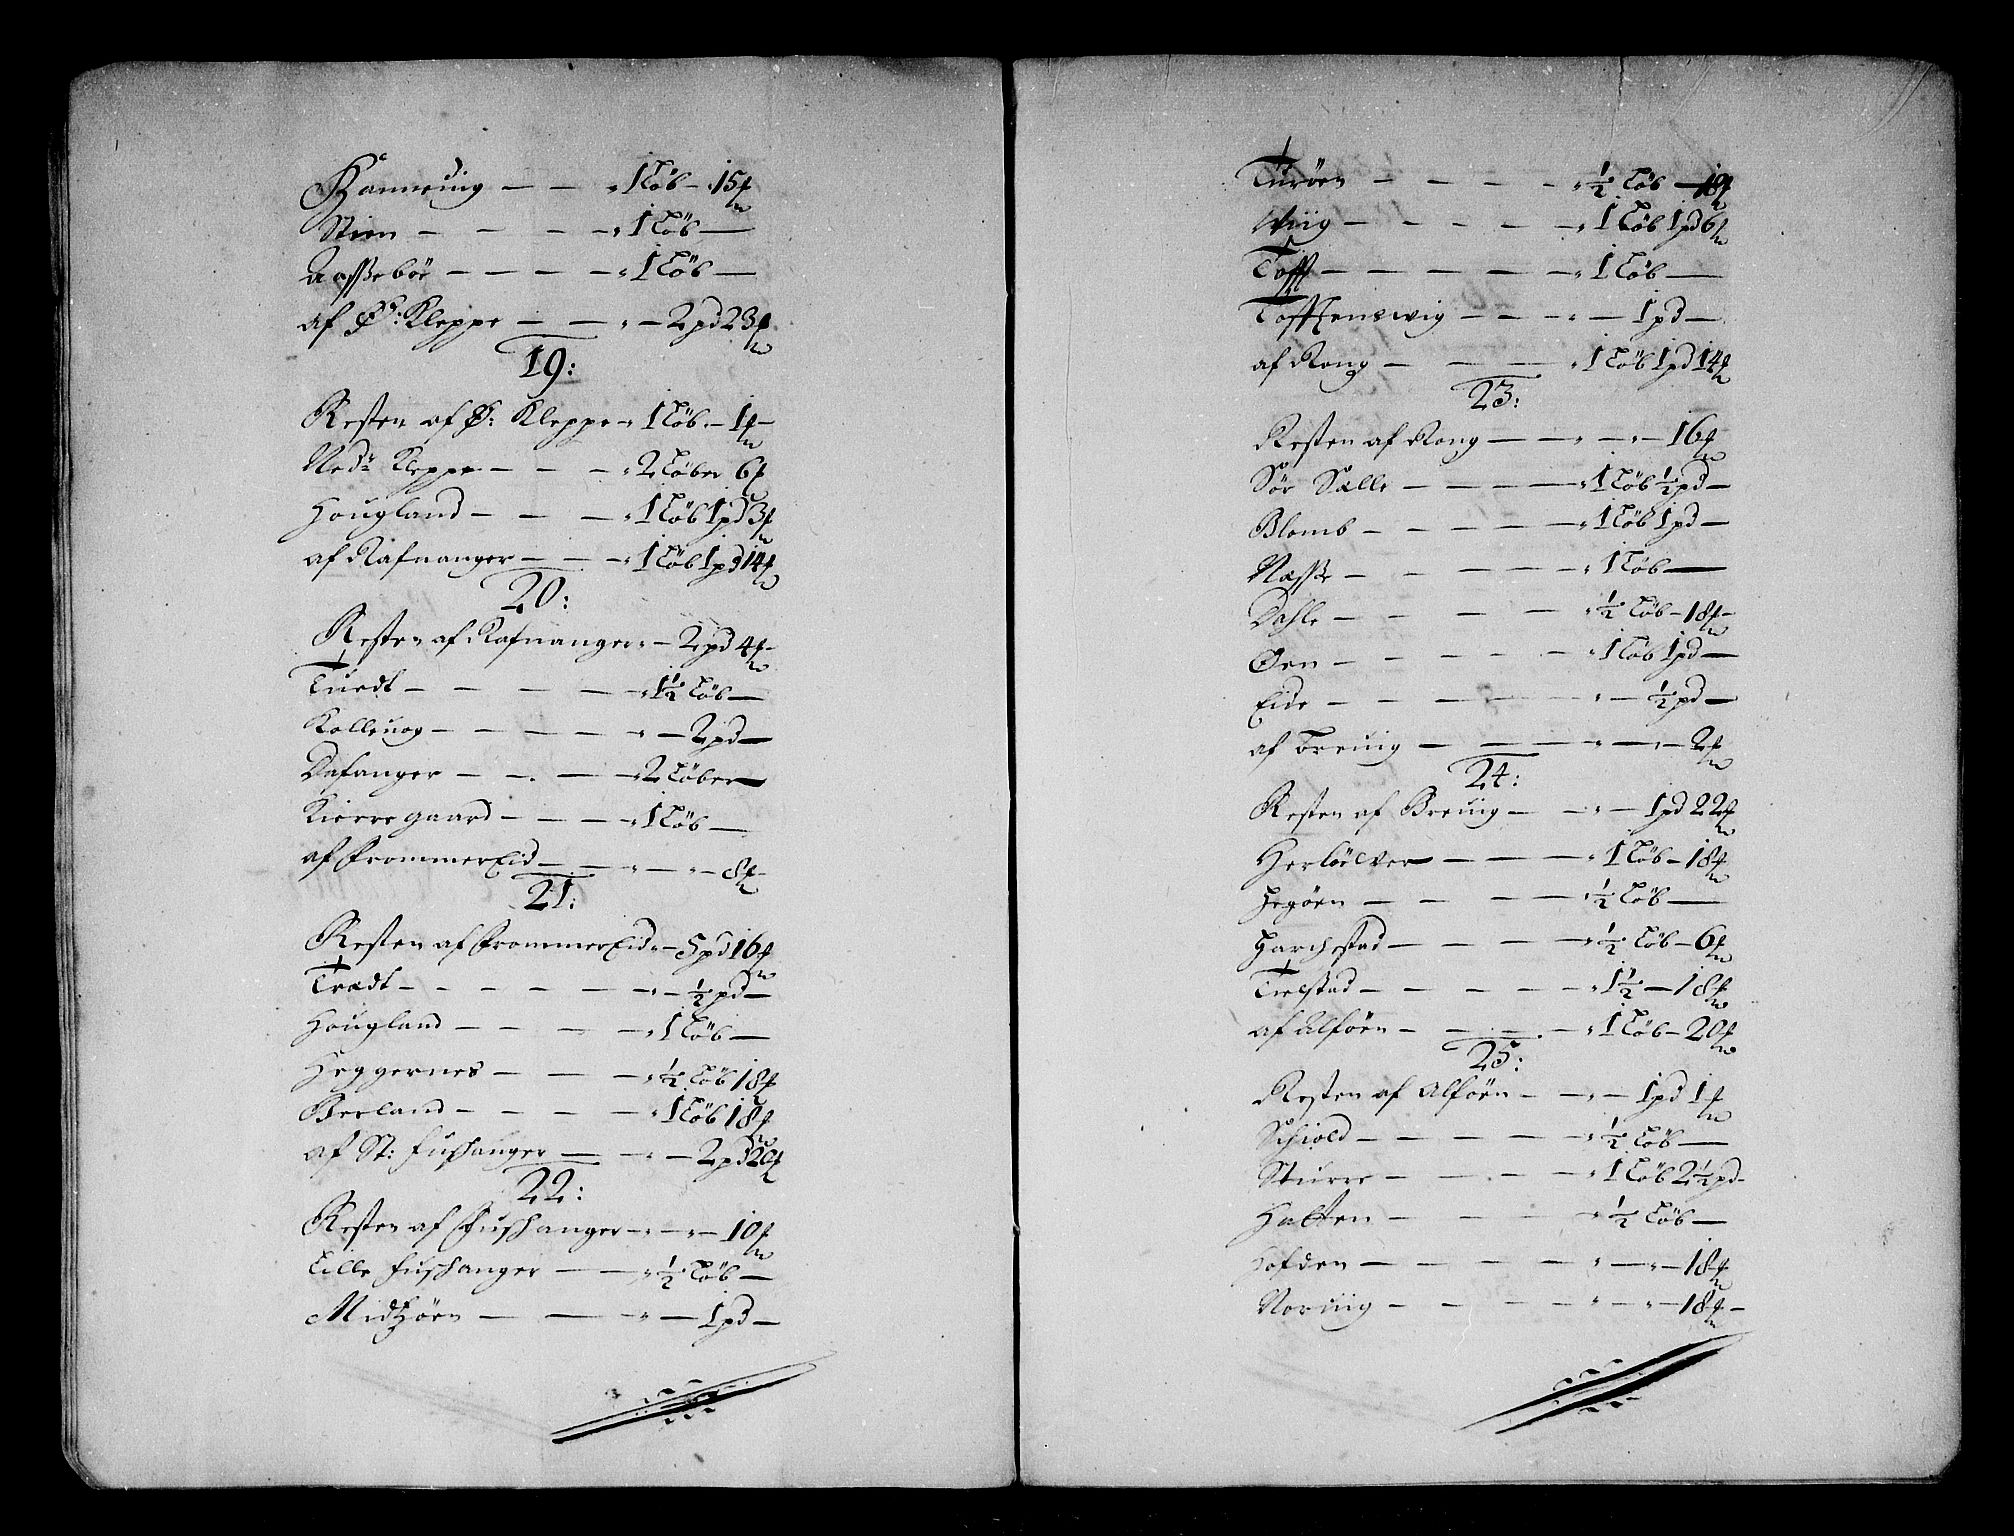 Hanneuig — — „ 1 Løb — 15 ℔
Steen — — — — „ 1 Løb —
Aassebøe — — — — „ 1 Løb —
af Ø: Kleppe — — „ — 2 pd 23 ℔
19:
Resten af Ø: Kleppe „ 1 Løb — 1 ℔
Nedr Kleppe — — — „ 2 Løber 6 ℔
Hougland — — — „ 1 Løb 1 pd 3 ℔
af Rafnanger — — „ 1 Løb 1 pd 14 ℔
20:
Resten af Rafnanger „ — 2 pd 4 ℔
Tuedt — — — — „ 1½ Løb —
Kolleuog — — — — „ — 2 pd —
Dafanger — — — „ 2 Løber
Kierregaard — — — „ 1 Løb —
af FrommerEid — — „ — „ — 8 ℔
21:
Resten af FrommerEid „ — 5 pd 16 ℔
Trædt — — — — — „ — ½ pd —
Hougland — — — — „ 1 Løb —
Heggernes — — — „ ½ Løb 18 ℔
Berland — — — — „ 1 Løb 18 ℔
af St: Fushanger — — „ — 2 pd 20 ℔
22:
Resten af Fushanger — „ — „ — 10 ℔
Lille Fushanger — — „ ½ Løb —
Midtøen — — „ — 1 pd —
Turøen — — — — „ ½ Løb — 18 ℔
Wiig — — — — — „ 1 Løb 1 pd 6 ℔
Toft — — — — — „ 1 Løb —
Tofftenswig — — — „ — 1 pd —
af Rong — — — „ 1 Løb 1 pd 14 ℔
23:
Resten af Rong — — „ — „ — 16 ℔
Sør Sælle — — — — „ 1 Løb ½ pd —
Blomb — — — — — „ 1 Løb 1 pd —
Næsse — — — — — „ 1 Løb —
Dahle — — — — — „ ½ Løb — 18 ℔
Øen — — — — — „ 1 Løb 1 pd —
Eide — — — — — „ — ½ pd —
af Breuig — — — „ — „ — 2 ℔
24:
Resten af Breuig — — „ — 1 pd 22 ℔
Herløeluer — — — „ 1 Løb — 18 ℔
Hegøen — — — — „ ½ Løb —
Harchestad — — — — „ ½ Løb — 6 ℔
Tielstad — — — — — „ 1½ — 18 ℔
af Alføen — — — — „ 1 Løb — 20 ℔
25:
Resten af Alføen — — „ — 1 pd 1 ℔
Schiold — — — — — „ ½ Løb —
Sturre — — — — „ 1 Løb 2½ pd —
Hatten — — — — „ ½ Løb —
Hofden — — — — — „ — „ — 18 ℔
Noruiig — — — — „ — „ — 18 ℔ —